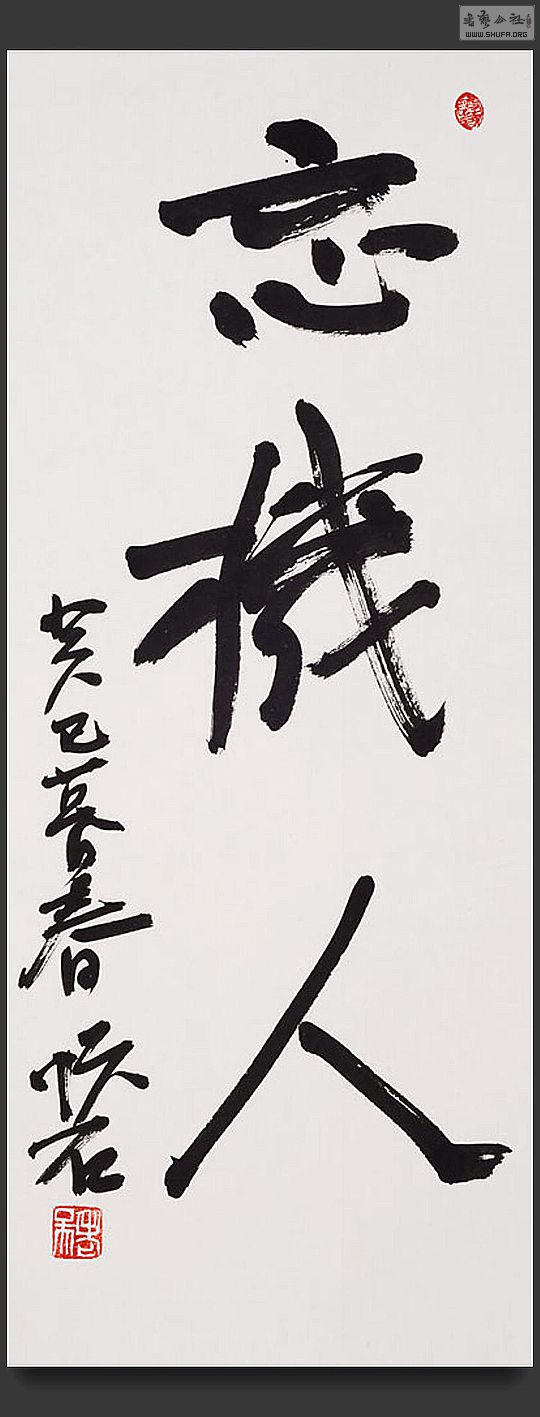 忘機人
癸巳暮春
书艺公社
WWW.SHUFA.ORG